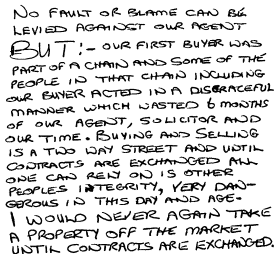 NO FAULT OR BLAME CAN BE
LEVIED AGAINST OUR AGENT
BUT:- OUR FIRST BUYER WAS
PART OF A CHAIN AND SOME OF THE
PEOPLE IN THAT CHAIN INCLUDING
OUR BUYER ACTED IN A DISGRACEFUL
MANNER WHICH WASTED 6 MONTHS
OF OUR AGENT, SOLICITOR AND
OUR TIME. BUYING AND SELLING
IS A TWO WAY STREET AND UNTIL
CONTRACTS ARE EXCHANGED ALL
ONE CAN RELY ON IS OTHER
PEOPLES INTEGRITY, VERY DAN-
GEROUS IN THIS DAY AND AGE.
I WOULD NEVER AGAIN TAKE
A PROPERTY OFF THE MARKET
UNTIL CONTRACTS ARE EXCHANGED.